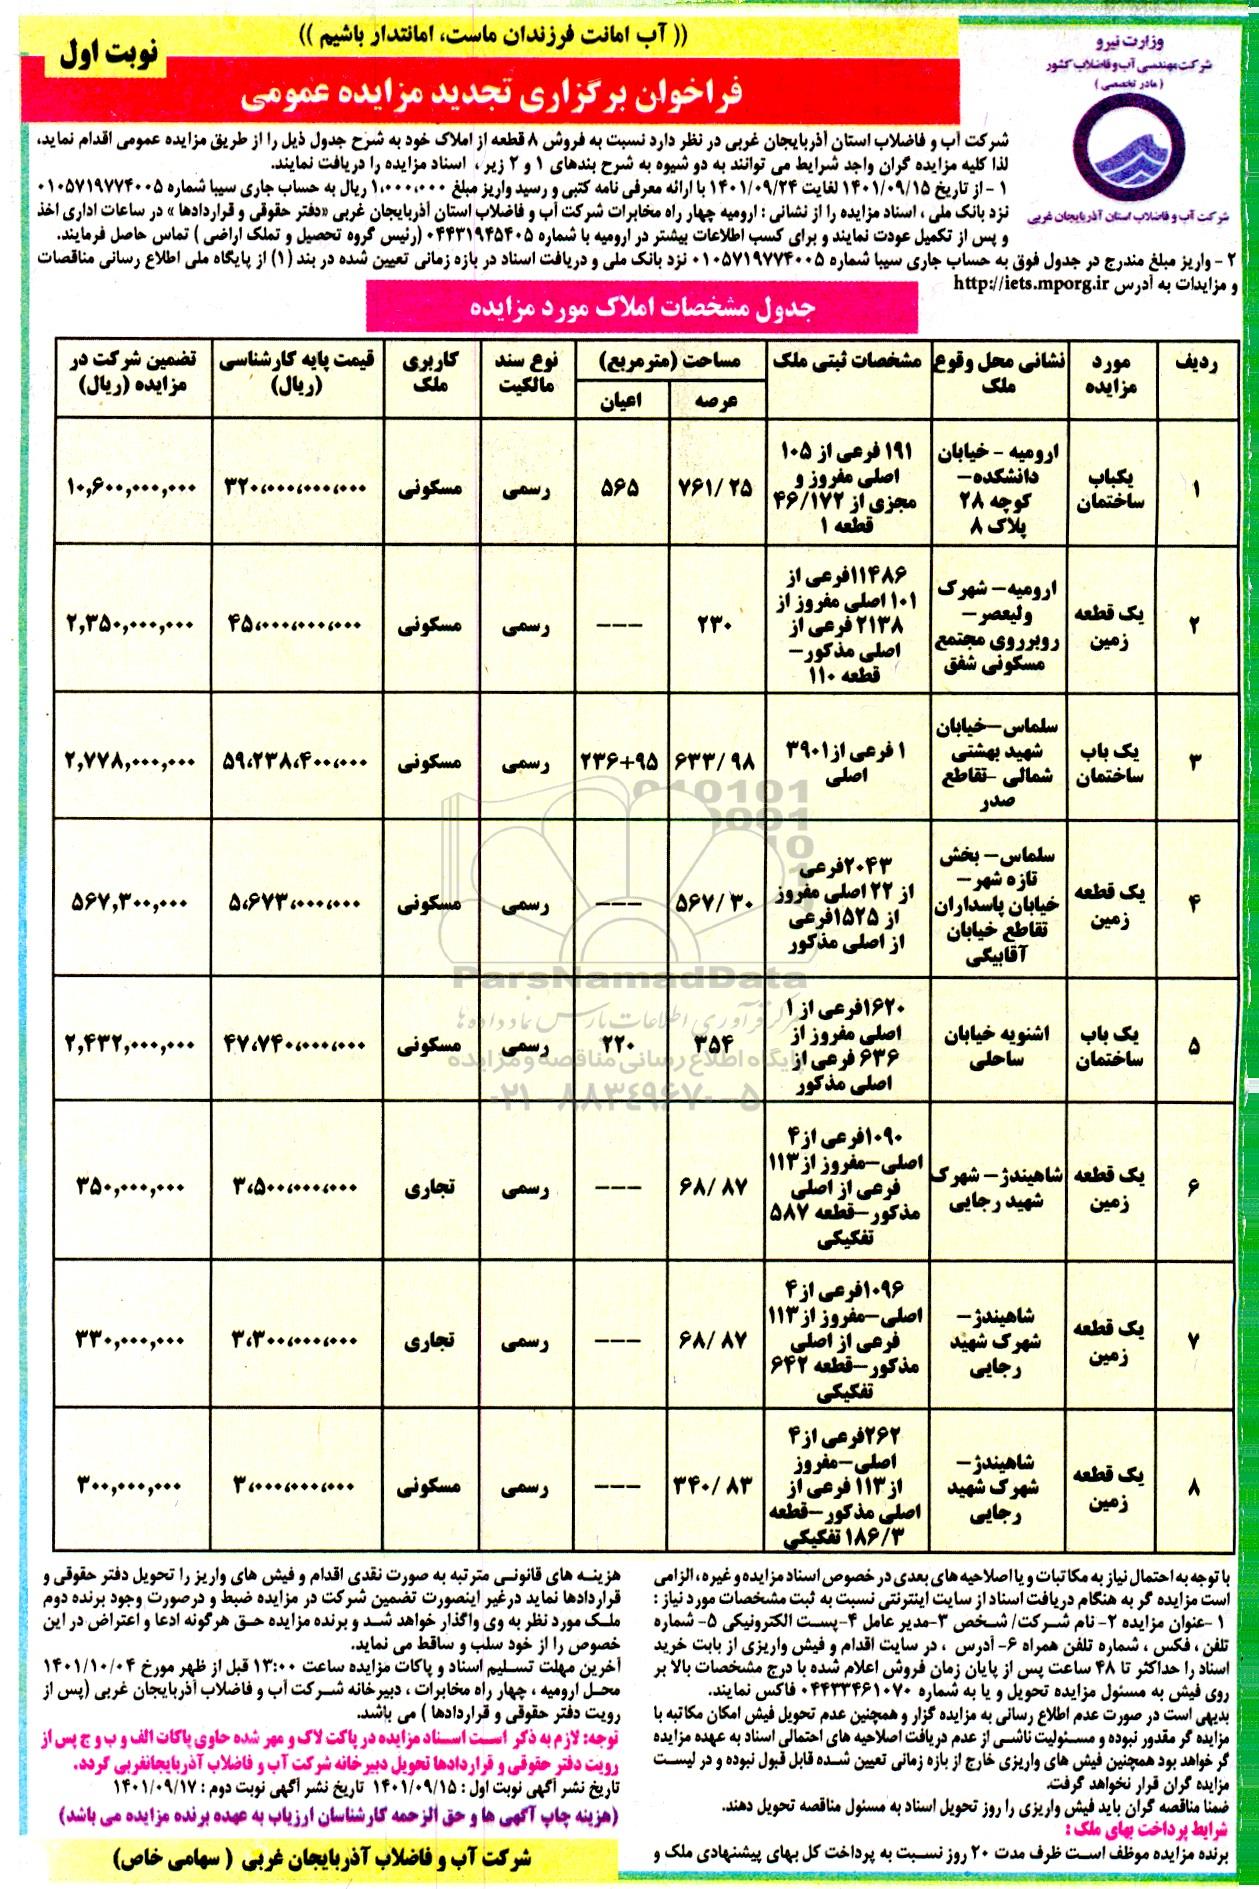 (( آب امانت فرزندان ماست، امانتدار باشیم ))
نوبت اول
فراخوان برگزاری تجدید مزایده عمومی
وزارت نیرو
شرکت مهندسی آب و فاضلاب کشور
(مادر تخصصی)
شرکت آب و فاضلاب استان آذربایجان غربی
شرکت آب و فاضلاب استان آذربایجان غربی در نظر دارد نسبت به فروش ۸ قطعه از املاک خود به شرح جدول ذیل را از طریق مزایده عمومی اقدام نماید،
لذا کلیه مزایده گران واجد شرایط می توانند به دو شیوه به شرح بندهای ۱ و ۲ زیر ، اسناد مزایده را دریافت نمایند.
۱ - از تاریخ ۱۴۰۱/۰۹/۱۵ لغایت ۱۴۰۱/۰۹/۲۴ با ارائه معرفی نامه کتبی و رسید واریز مبلغ ۱,۰۰۰,۰۰۰ ریال به حساب جاری سیبا شماره ۰۱۰۵۷۱۹۷۷۴۰۰۵
نزد بانک ملی ، اسناد مزایده را از نشانی : ارومیه چهار راه مخابرات شرکت آب و فاضلاب استان آذربایجان غربی «دفتر حقوقی و قراردادها » در ساعات اداری اخذ
و پس از تکمیل عودت نمایند و برای کسب اطلاعات بیشتر در ارومیه با شماره ۰۴۴۳۱۹۴۵۴۰۵ (رئیس گروه تحصیل و تملک اراضی ) تماس حاصل فرمایند.
۲ - واریز مبلغ مندرج در جدول فوق به حساب جاری سیبا شماره ۰۱۰۵۷۱۹۷۷۴۰۰۵ نزد بانک ملی و دریافت اسناد در بازه زمانی تعیین شده در بند (۱) از پایگاه ملی اطلاع رسانی مناقصات
و مزایدات به آدرس http://iets.mporg.ir
جدول مشخصات املاک مورد مزایده
ردیف | مورد مزایده | نشانی محل وقوع ملک | مشخصات ثبتی ملک | مساحت (مترمربع) عرصه | اعیان | نوع سند مالکیت | کاربری ملک | قیمت پایه کارشناسی (ریال) | تضمین شرکت در مزایده (ریال)
۱ | یکباب ساختمان | ارومیه - خیابان دانشکده– کوچه ۲۸ پلاک ۸ | ۱۹۱ فرعی از ۱۰۵ اصلی مفروز و مجزی از ۴۶/۱۷۲ قطعه ۱ | ۷۶۱/۲۵ | ۵۶۵ | رسمی | مسکونی | ۳۲۰،۰۰۰،۰۰۰،۰۰۰ | ۱۰,۶۰۰,۰۰۰,۰۰۰
۲ | یک قطعه زمین | ارومیه– شهرک ولیعصر– روبرروی مجتمع مسکونی شفق | ۱۱۴۸۶فرعی از ۱۰۱ اصلی مفروز از ۲۱۳۸ فرعی از اصلی مذکور– قطعه ۱۱۰ | ۲۳۰ | ––– | رسمی | مسکونی | ۴۵،۰۰۰،۰۰۰،۰۰۰ | ۲,۳۵۰,۰۰۰,۰۰۰
۳ | یک باب ساختمان | سلماس–خیابان شهید بهشتی شمالی –تقاطع صدر | ۱ فرعی از ۳۹۰۱ اصلی | ۶۳۳/۹۸ | ۲۳۶+۹۵ | رسمی | مسکونی | ۵۹،۲۳۸،۴۰۰،۰۰۰ | ۲,۷۷۸,۰۰۰,۰۰۰
۴ | یک قطعه زمین | سلماس– بخش تازه شهر– خیابان پاسداران تقاطع خیابان آقابیگی | ۲۰۴۳فرعی از ۲۲ اصلی مفروز از ۱۵۲۵فرعی از اصلی مذکور | ۵۶۷/۳۰ | ––– | رسمی | مسکونی | ۵،۶۷۳،۰۰۰،۰۰۰ | ۵۶۷,۳۰۰,۰۰۰
۵ | یک باب ساختمان | اشنویه خیابان ساحلی | ۱۶۲۰فرعی از ۱ اصلی مفروز از ۶۳۶ فرعی از اصلی مذکور | ۳۵۴ | ۲۲۰ | رسمی | مسکونی | ۴۷،۷۴۰،۰۰۰،۰۰۰ | ۲,۴۳۲,۰۰۰,۰۰۰
۶ | یک قطعه زمین | شاهیندژ– شهرک شهید رجایی | ۱۰۹۰فرعی از ۴ اصلی–مفروز از ۱۱۳ فرعی از اصلی مذکور–قطعه ۵۸۷ تفکیکی | ۶۸/۸۷ | ––– | رسمی | تجاری | ۳،۵۰۰،۰۰۰،۰۰۰ | ۳۵۰,۰۰۰,۰۰۰
۷ | یک قطعه زمین | شاهیندژ– شهرک شهید رجایی | ۱۰۹۶فرعی از ۴ اصلی–مفروز از ۱۱۳ فرعی از اصلی مذکور–قطعه ۶۴۲ تفکیکی | ۶۸/۸۷ | ––– | رسمی | تجاری | ۳،۳۰۰،۰۰۰،۰۰۰ | ۳۳۰,۰۰۰,۰۰۰
۸ | یک قطعه زمین | شاهیندژ– شهرک شهید رجایی | ۲۶۲فرعی از ۴ اصلی–مفروز از ۱۱۳ فرعی از اصلی مذکور–قطعه ۱۸۶/۳ تفکیکی | ۳۴۰/۸۳ | ––– | رسمی | مسکونی | ۳،۰۰۰،۰۰۰،۰۰۰ | ۳۰۰,۰۰۰,۰۰۰
ParsNamadData
مرکز فرآوری اطلاعات پارس نماد داده ها
پایگاه اطلاع رسانی مناقصه و مزایده
۰۲۱-۸۸۳۴۹۶۷۰-۵
با توجه به احتمال نیاز به مکاتبات و یا اصلاحیه های بعدی در خصوص اسناد مزایده و غیره ، الزامی
است مزایده گر به هنگام دریافت اسناد از سایت اینترنتی نسبت به ثبت مشخصات مورد نیاز :
۱ -عنوان مزایده ۲- نام شرکت/ شخص ۳-مدیر عامل ۴-پست الکترونیکی ۵- شماره
تلفن ، فکس ، شماره تلفن همراه ۶- آدرس ، در سایت اقدام و فیش واریزی از بابت خرید
اسناد را حداکثر تا ۴۸ ساعت پس از پایان زمان فروش اعلام شده با درج مشخصات بالا بر
روی فیش به مسئول مزایده تحویل و یا به شماره ۰۴۴۳۳۴۶۱۰۷۰ فاکس نمایند.
بدیهی است در صورت عدم اطلاع رسانی به مزایده گزار و همچنین عدم تحویل فیش امکان مکاتبه با
مزایده گر مقدور نبوده و مسئولیت ناشی از عدم دریافت اصلاحیه های احتمالی اسناد به عهده مزایده
گر خواهد بود همچنین فیش های واریزی خارج از بازه زمانی تعیین شده قابل قبول نبوده و در لیست
مزایده گران قرار نخواهد گرفت.
ضمنا مناقصه گران باید فیش واریزی را روز تحویل اسناد به مسئول مناقصه تحویل دهند.
شرایط پرداخت بهای ملک :
برنده مزایده موظف است ظرف مدت ۲۰ روز نسبت به پرداخت کل بهای پیشنهادی ملک و
هزینه های قانونی مترتبه به صورت نقدی اقدام و فیش های واریز را تحویل دفتر حقوقی و
قراردادها نماید درغیر اینصورت تضمین شرکت در مزایده ضبط و درصورت وجود برنده دوم
ملک مورد نظر به وی واگذار خواهد شد و برنده مزایده حق هرگونه ادعا و اعتراض در این
خصوص را از خود سلب و ساقط می نماید.
آخرین مهلت تسلیم اسناد و پاکات مزایده ساعت ۱۳:۰۰ قبل از ظهر مورخ ۱۴۰۱/۱۰/۰۴
محل ارومیه ، چهار راه مخابرات ، دبیرخانه شرکت آب و فاضلاب آذربایجان غربی (پس از
رویت دفتر حقوقی و قراردادها ) می باشد.
توجه: لازم به ذکر است اسناد مزایده در پاکت لاک و مهر شده حاوی پاکات الف و ب و ج پس از
رویت دفتر حقوقی و قراردادها تحویل دبیرخانه شرکت آب و فاضلاب آذربایجانغربی گردد.
تاریخ نشر آگهی نوبت اول : ۱۴۰۱/۰۹/۱۵ تاریخ نشر آگهی نوبت دوم : ۱۴۰۱/۰۹/۱۷
(هزینه چاپ آگهی ها و حق الزحمه کارشناسان ارزیاب به عهده برنده مزایده می باشد)
شرکت آب و فاضلاب آذربایجان غربی ( سهامی خاص)